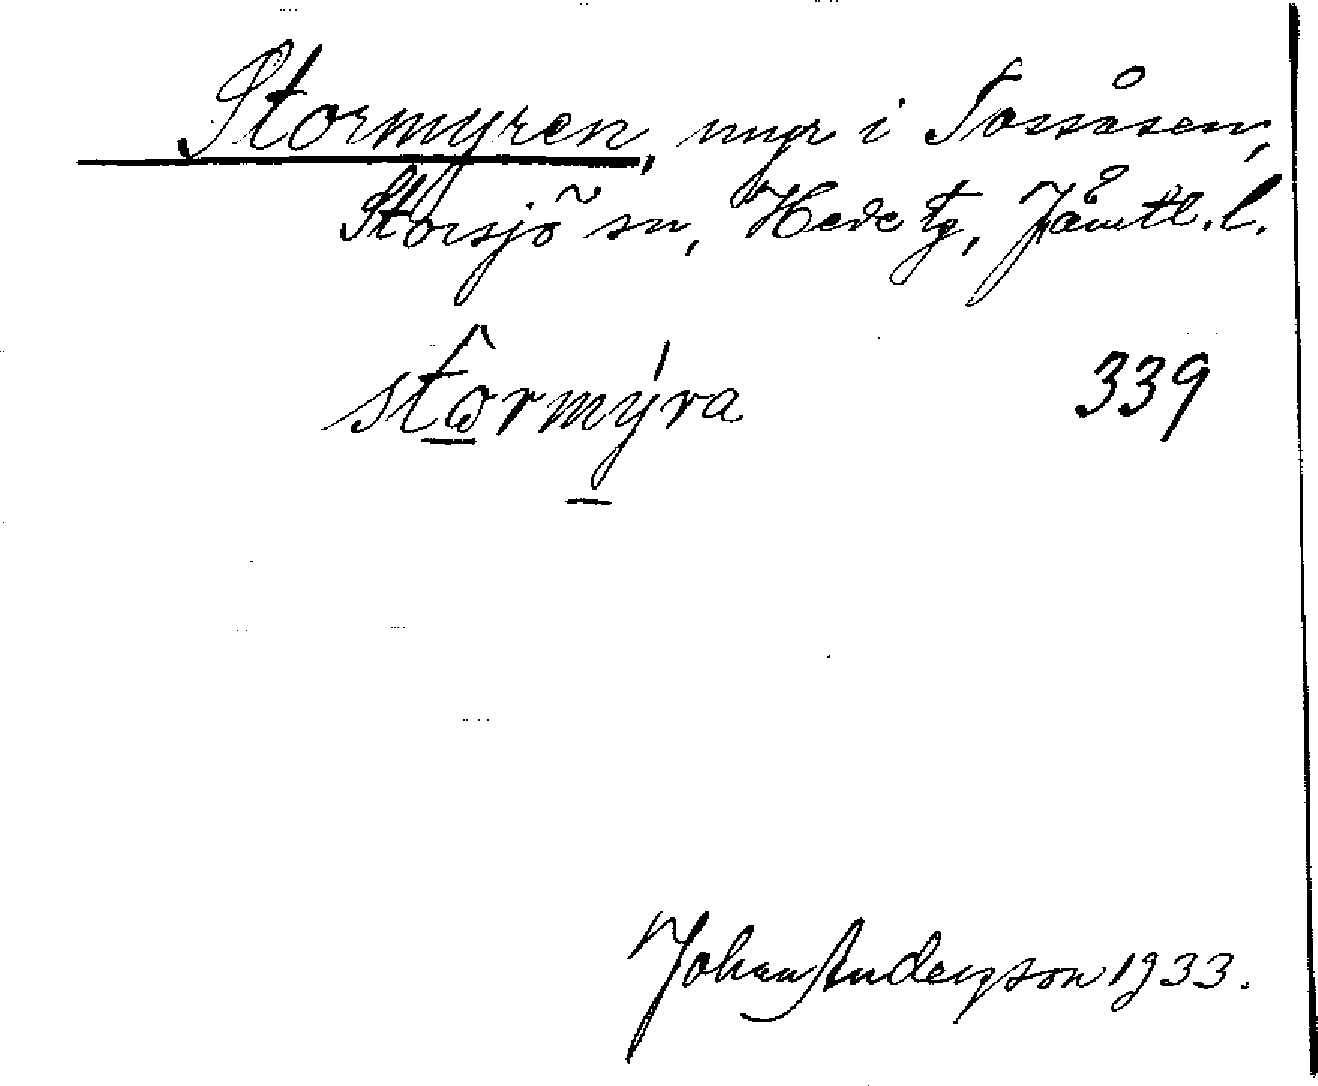 Stormyren, myr i Tossåsen,
Storsjö sn, Hede tg, Jämtl. l.
stormýra 339
Johan Anderson 1933.